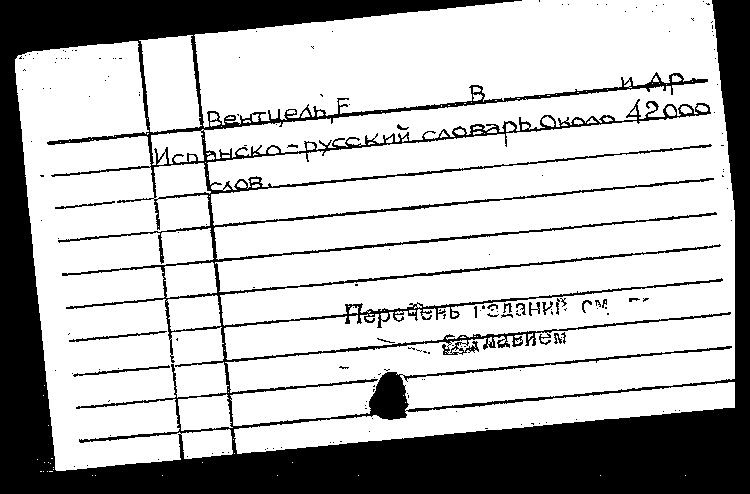 Вентцель, Е В и др.
Испанско-русский словарь. Около 42000
слов.
Перечень изданий см
заглавием